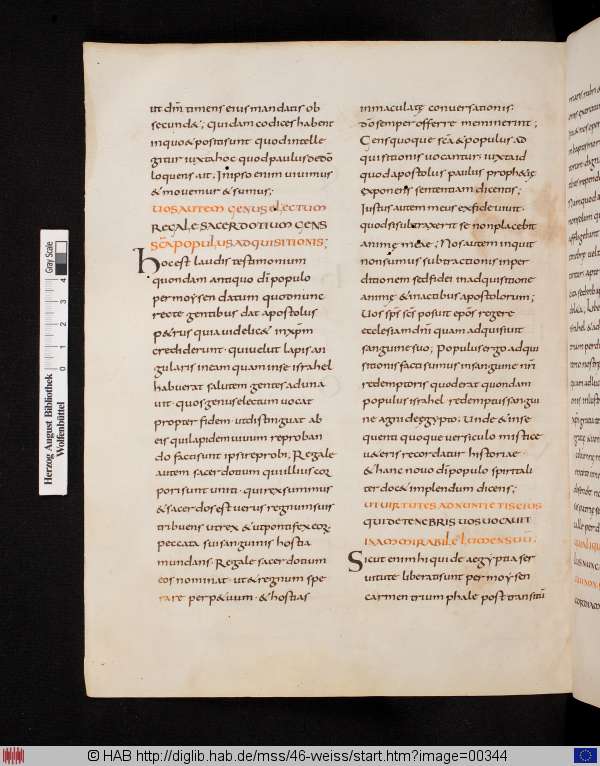 ut dm̄ timens eius mandatis ob
secundet; Quidam codices habent
in quo & positi sunt quod intelle
gitur iuxta hoc quod paulus de dō
loquens ait; In ipso enim vivimus
& movemur & sumus;
UOS AUTEM GENUS ELECTUM
REGALE SACERDOTIUM GENS
SCĀ POPULUS ADQUISITIONIS;
Hoc est laudis testimonium
quondam antiquo dī populo
per moysen datum quod nunc
recte gentibus dat apostolus
p&rus quia videlic& in xp̄m
crediderunt · qui velut lapis an
gularis in eam quam in se israhel
habuerat salutem gentes aduna
vit · quos genus electum vocat
propter fidem · ut distinguat ab
eis qui lapidem vivum reproban
do facti sunt ipsi reprobi; Regale
autem sacerdotium qui illius cor
pori sunt uniti · qui rex summus
& sacerdos est verus regnum suis
tribuens ut rex & ut pontifex eor
peccata sui sanguinis hostia
mundans · Regale sacerdotium
eos nominat · ut & regnum spe
rare perp&uum · & hostias
inmaculatę conversationis
dō semper offerre meminerint;
Gens quoque scā & populus ad
quisitionis vocantur iuxta id
quod apostolus paulus prophetę
exponens sententiam dicentis;
Iustus autem meus ex fide vivit ·
quod si subtraxerit se non placebit
animę meae; Nos autem inquit
non sumus subtractionis in per
ditionem sed fidei in adquisitione
animę & in actibus apostolorum;
Vos sp̄s scs̄ posuit ep̄os regere
ecclesiam dn̄i quam adquisivit
sanguine suo; Populus ergo adqui
sitionis facti sumus in sanguine nr̄i
redemptoris quod erat quondam
populus israhel redemptus sangui
ne agni de egypto; Unde & in se
quenti quoque versiculo mistice
v&eris recordatur historiae ·
& hanc novo dī populo spiritali
ter doc& implendum dicens;
UT UIRTUTES ADNUNTIETIS EIUS
QUI DE TENEBRIS UOS UOCAUIT
IN ADMIRABILE LUMEN SUŪ.
Sicut enim hi qui de aegyptia ser
vitute liberati sunt per moysen
carmen triumphale post transitū
Herzog August Bibliothek
Wolfenbüttel
0 1 2 3 4
Gray Scale
© HAB http://diglib.hab.de/mss/46-weiss/start.htm?image=00344